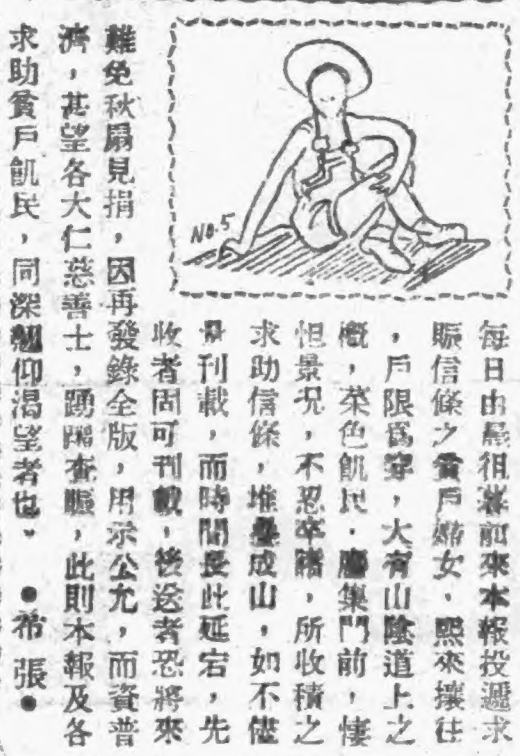 每日由晨徂暮前來本報投遞求
賑信條之貧戶婦女,熙來攘往
,戶限爲穿,大有山陰道上之
概,菜色飢民,麕集門前,悽
怛景況,不忍卒睹,所收積之
求助信條,堆疊成山,如不儘
量刊載,而時間長此延宕,先
收者固可刊載,後送者恐將來
難免秋扇見捐,因再發錄全版,用示公允,而資普
濟,甚望各大仁慈善士,踴躍查賑,此則本報及各
求助貧戶飢民,同深翹仰渴望者也。●希張●
No.5